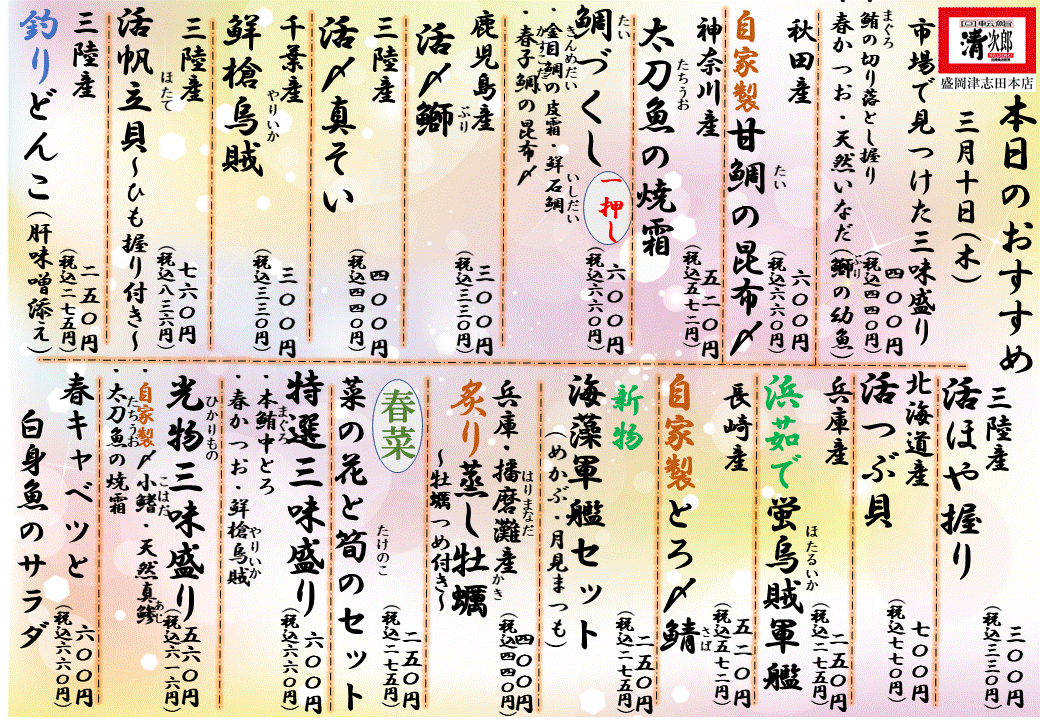 回転鮨
清次郎
盛岡津志田本店
本日のおすすめ
三月十日(木)
市場で見つけた三味盛り
・鮪の切り落とし握り
まぐろ
・春かつお・天然いなだ(鰤の幼魚)
ぶり
四〇〇円
(税込四四〇円)
秋田産
自家製甘鯛の昆布〆
たい
六〇〇円
(税込六六〇円)
神奈川産
太刀魚の焼霜
たちうお
五二〇円
(税込五七二円)
鯛づくし
たい
一押し
・金目鯛の皮霜・鮮石鯛
きんめだい
いしだい
・春子鯛の昆布〆
かすごだい
六〇〇円
(税込六六〇円)
鹿児島産
活〆鰤
ぶり
三〇〇円
(税込三三〇円)
三陸産
活〆真そい
四〇〇円
(税込四四〇円)
千葉産
鮮槍烏賊
やりいか
三〇〇円
(税込三三〇円)
三陸産
活帆立貝~ひも握り付き~
ほたて
七六〇円
(税込八三六円)
三陸産
釣りどんこ(肝味噌添え)
二五〇円
(税込二七五円)
三陸産
活ほや握り
三〇〇円
(税込三三〇円)
北海道産
活つぶ貝
七〇〇円
(税込七七〇円)
兵庫産
浜茹で蛍烏賊軍艦
ほたるいか
二五〇円
(税込二七五円)
長崎産
自家製とろ〆鯖
さば
五二〇円
(税込五七二円)
新物
海藻軍艦セット
(めかぶ・月見まつも)
二五〇円
(税込二七五円)
兵庫・播磨灘産
はりまなだ
炙り蒸し牡蠣
かき
~牡蠣つめ付き~
四〇〇円
(税込四四〇円)
春菜
菜の花と筍のセット
たけのこ
二五〇円
(税込二七五円)
特選三味盛り
・本鮪中とろ
まぐろ
・春かつお・鮮槍烏賊
やりいか
六〇〇円
(税込六六〇円)
光物三味盛り
ひかりもの
・自家製〆小鰭・天然真鯵
こはだ
あじ
・太刀魚の焼霜
たちうお
五六〇円
(税込六一六円)
春キャベツと
白身魚のサラダ
六〇〇円
(税込六六〇円)